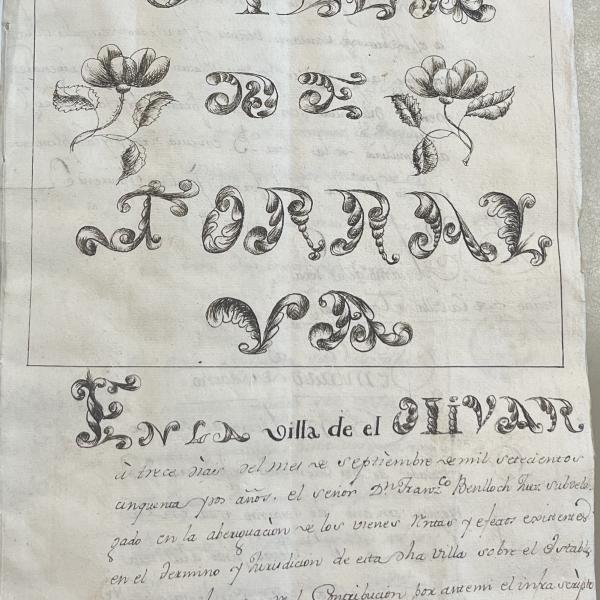 DE
TORRAL
VA
EN LA villa de el OLiVAR
à trece dias del mes de septiembre de mil setecientos
cinquenta y dos años, el señor Dn. Franco Benlloch Juez subdele
gado en la aberiguaciòn de los vienes Rentas y efectos existentes
en el termino y Jurisdicion de esta dha villa sobre el Estable
Contribuciòn por antemi el infra scripto